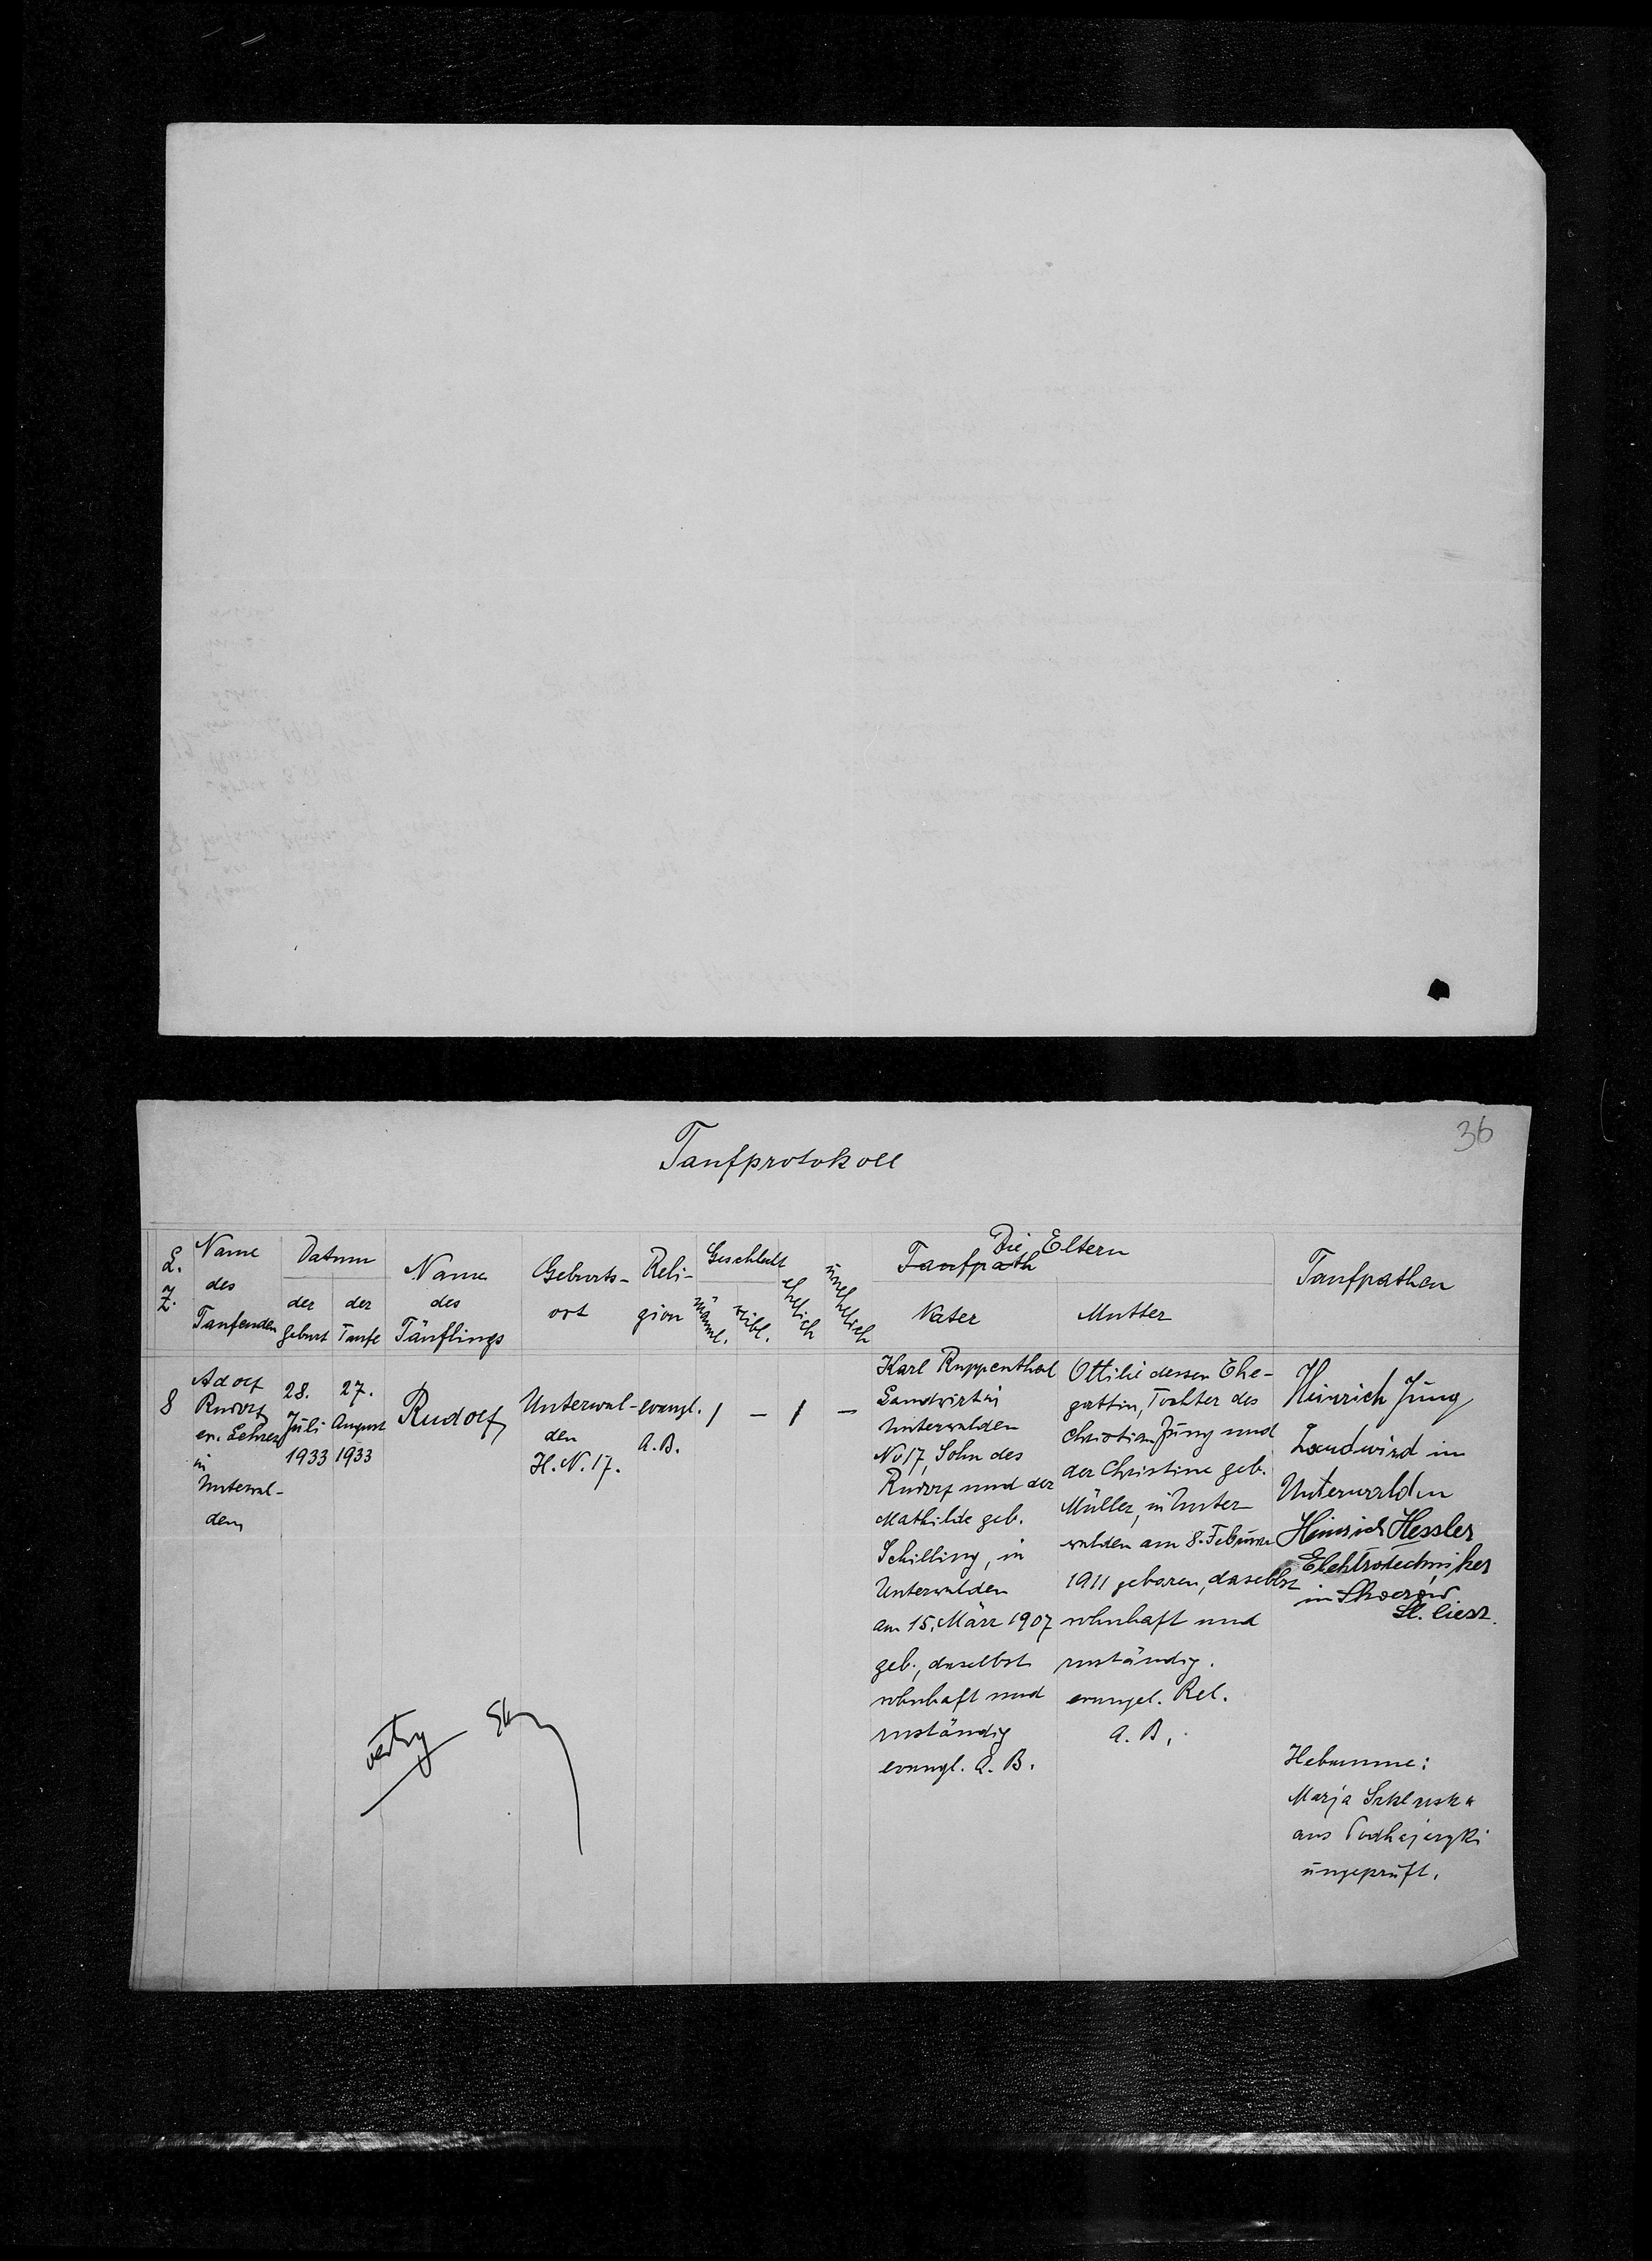 36
Taufprotokoll
L. Z.
Name des Taufenden
Datum
der Geburt
der Taufe
Name des Täuflings
Geburts-
ort
Reli-
gion
Geschlecht
männl.
weibl.
ehelich
unehelich
Die Eltern
Taufpath
Vater
Mutter
Taufpathen
8
Adolf
Rudolf
ev. Lehrer
in
Unterwal-
den
28.
Juli
1933
27.
August
1933
Rudolf
Unterwal-
den
H. N. 17.
evangl.
A. B.
1
–
1
–
Karl Ruppenthal
Landwirt in
Unterwalden
No 17, Sohn des
Rudolf und der
Mathilde geb.
Schilling, in
Unterwalden
am 15. März 1907
geb., daselbst
wohnhaft und
zuständig
evangl. A. B.
Ottilie dessen Ehe-
gattin, Tochter des
Christian Jung und
der Christine geb.
Müller, in Unter-
walden am 8. Februar
1911 geboren, daselbst
wohnhaft und
zuständig.
evangel. Rel.
A. B.
Heinrich Jung
Landwird in
Unterwalden
Heinrich Hessler
Elektrotechniker
in Skoczów
Śl. Ciesz.
Hebamme:
Marja
aus Podhajczyki
ungeprüft.